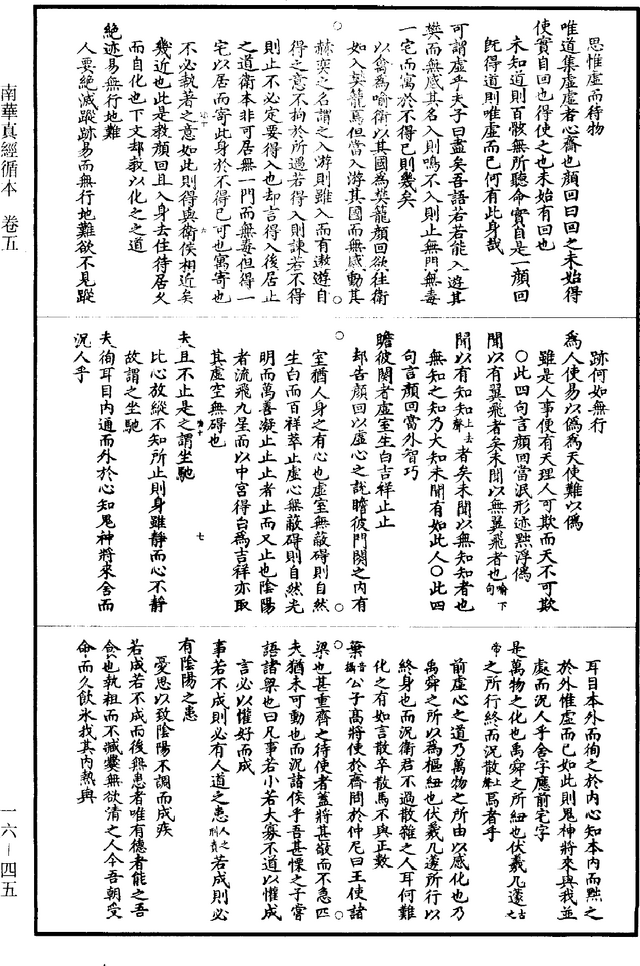 南華真經循本 卷五
一六—四五
思惟虛而待物
唯道集虛虛者心齋也顏回曰回之未始得
使實自回也得使之也未始有回也
未知道則百骸無所聽命實自是一顏回
旣得道則唯虛而已何有此身哉
可謂虛乎夫子曰盡矣吾語若若能入遊其
樊而無感其名入則鳴不入則止無門無毒
一宅而寓於不得已則幾矣
以禽為喻衛以其國為樊籠顏回欲往衛
如入樊籠焉但當入游其國而無感動其
赫奕之名謂之入游則雖入而有遨遊自
得之意不拘於所遇若得入則諫若不得
則止不必定要得入也却言得入後居止
之道衛本非可居無一門而無毒但得一
宅以居而寄此身於不得已可也寓寄也
不必執著之意如此則得與衛侯相近矣
幾近也此是教顏回且入身去住待居久
而自化也下文却教以化之之道
絕迹易無行地難
人要絕滅蹤跡易而無行地難欲不見蹤
跡何如無行
為人使易以偽為天使難以偽
雖是人事便有天理人可欺而天不可欺
○此四句言顏回當泯形迹黜浮偽
聞以有翼飛者矣未聞以無翼飛者也喻下句
聞以有知知上去聲者矣未聞以無知知者也
無知之知乃大知未聞有如此人○此四
句言顏回當外智巧
瞻彼闋者虛室生白吉祥止止
却告顏回以虛心之說瞻彼門闋之內有
室猶人身之有心也虛室無蔽碍則自然
生白而百祥萃止虛心無蔽碍則自然光
明而萬善凝止止止者止而又止也陰陽
者流飛九星而以中宮得白為吉祥亦取
其虛空無碍也
夫且不止是之謂坐馳
比心放縱不知所止則身雖靜而心不靜
故謂之坐馳
夫徇耳目內通而外於心知鬼神將來舍而
況人乎
耳目本外而徇之於內心知本內而黜之
於外惟虛而已如此則鬼神將來與我並
處而況人乎舍字應前宅字
是萬物之化也禹舜之所紐也伏羲几蘧古之
帝之所行終而況散上聲焉者乎
前虛心之道乃萬物之所由以感化也乃
禹舜之所以為樞紐也伏羲几蘧所行以
終身也而況衛君不過散雜之人耳何難
化之有如言散卒散馬不與正數
葉音攝公子高將使於齊問於仲尼曰王使諸
梁也甚重齊之待使者蓋將甚敬而不急匹
夫猶未可動也而況諸侯乎吾甚慄之子嘗
語諸梁也曰凡事若小若大寡不道以懽成
言必以懽好而成
事若不成則必有人道之患人之刑責若成則必
有陰陽之患
憂思以致陰陽不調而成疾
若成若不成而後無患者唯有德者能之吾
食也執粗而不臧爨無欲清之人今吾朝受
命而夕飲冰我其內熱與